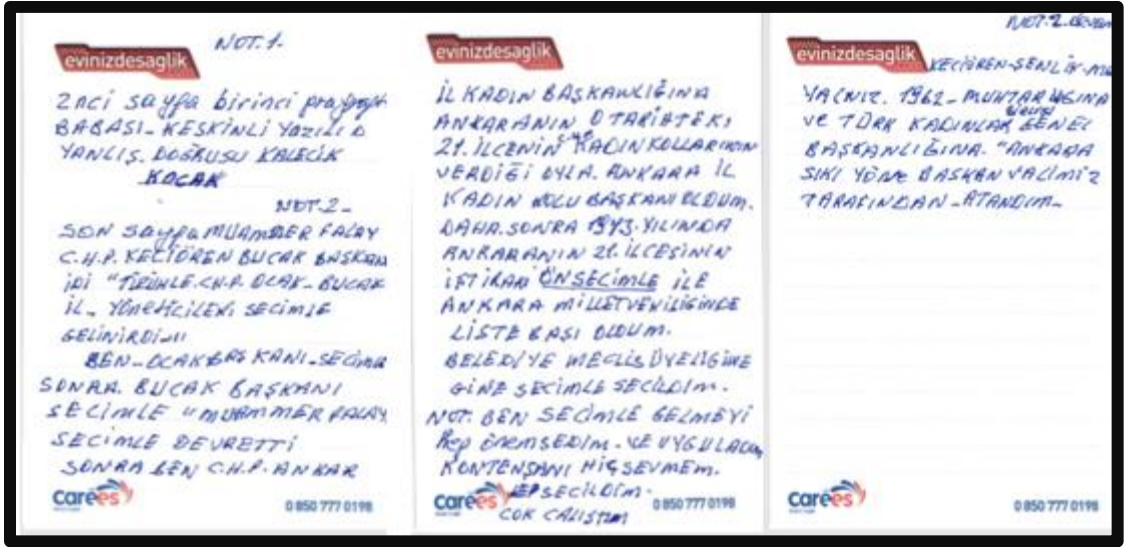 NOT.1.
evinizdesaglik
2nci sayfa birinci
BABASI_KESKİNLİ YAZILI
YANLIŞ. DOĞRUSU KALECİK
KOCAK
NOT.2_
SON sayfa MUAMMER FALAY
C.H.P. KEÇİÖREN BUCAK BAŞKAN
iDi " C.H.P. OCAK_BUCAK
İL_ YöneticileRi SEÇİMLE
GELİNİRDİ
BEN_OCAK BAŞKANI_SEÇİMLE
SONRA. BUCAK BAŞKANI
SECİMLE "MUAMMER FALAY
SECİMLE DEVRETTİ
SONRA BEN C.H.P. ANKAR
carees
0 850 777 0198
evinizdesaglik
İL KADIN BAŞKANLIĞINA
ANKARANIN O TARİHTEKİ
21. İLCENİN KADIN KOLLARININ
VERDİĞİ OYLA. ANKARA İL
KADIN KOLU BAŞKANI OLDUM.
DAHA.SONRA 1973.YILINDA
ANKARANIN 21.İLCESİNİN
İŞTİRAKİ ÖNSECİMLE İLE
ANKARA MİLLETVEKİLİĞİNDE
LİSTE BAŞI OLDUM.
BELEDİYE MECLİS ÜYELİĞİNE
GİNE SECİMLE SECİLDİM.
NOT. BEN SECİMLE GELMEYİ
Hep ÖNEMSEDİM. VE UYGULADIM
KONTENSANI HİÇ SEVMEM.
HEP SECİLDİM.
COK CALIŞTIM
carees
0 850 777 0198
NOT.2.devam
evinizdesaglik
KECİÖREN-SENLİK-MA
YALNIZ. 1962_MUHTARLIĞINA
VE TÜRK KADINLAR GENEL
BAŞKANLIĞINA. "ANKARA
SIKI YÖNE BAŞKAN VALİMİZ
TARAFINDAN_ATANDIM_
carees
0 850 777 0198